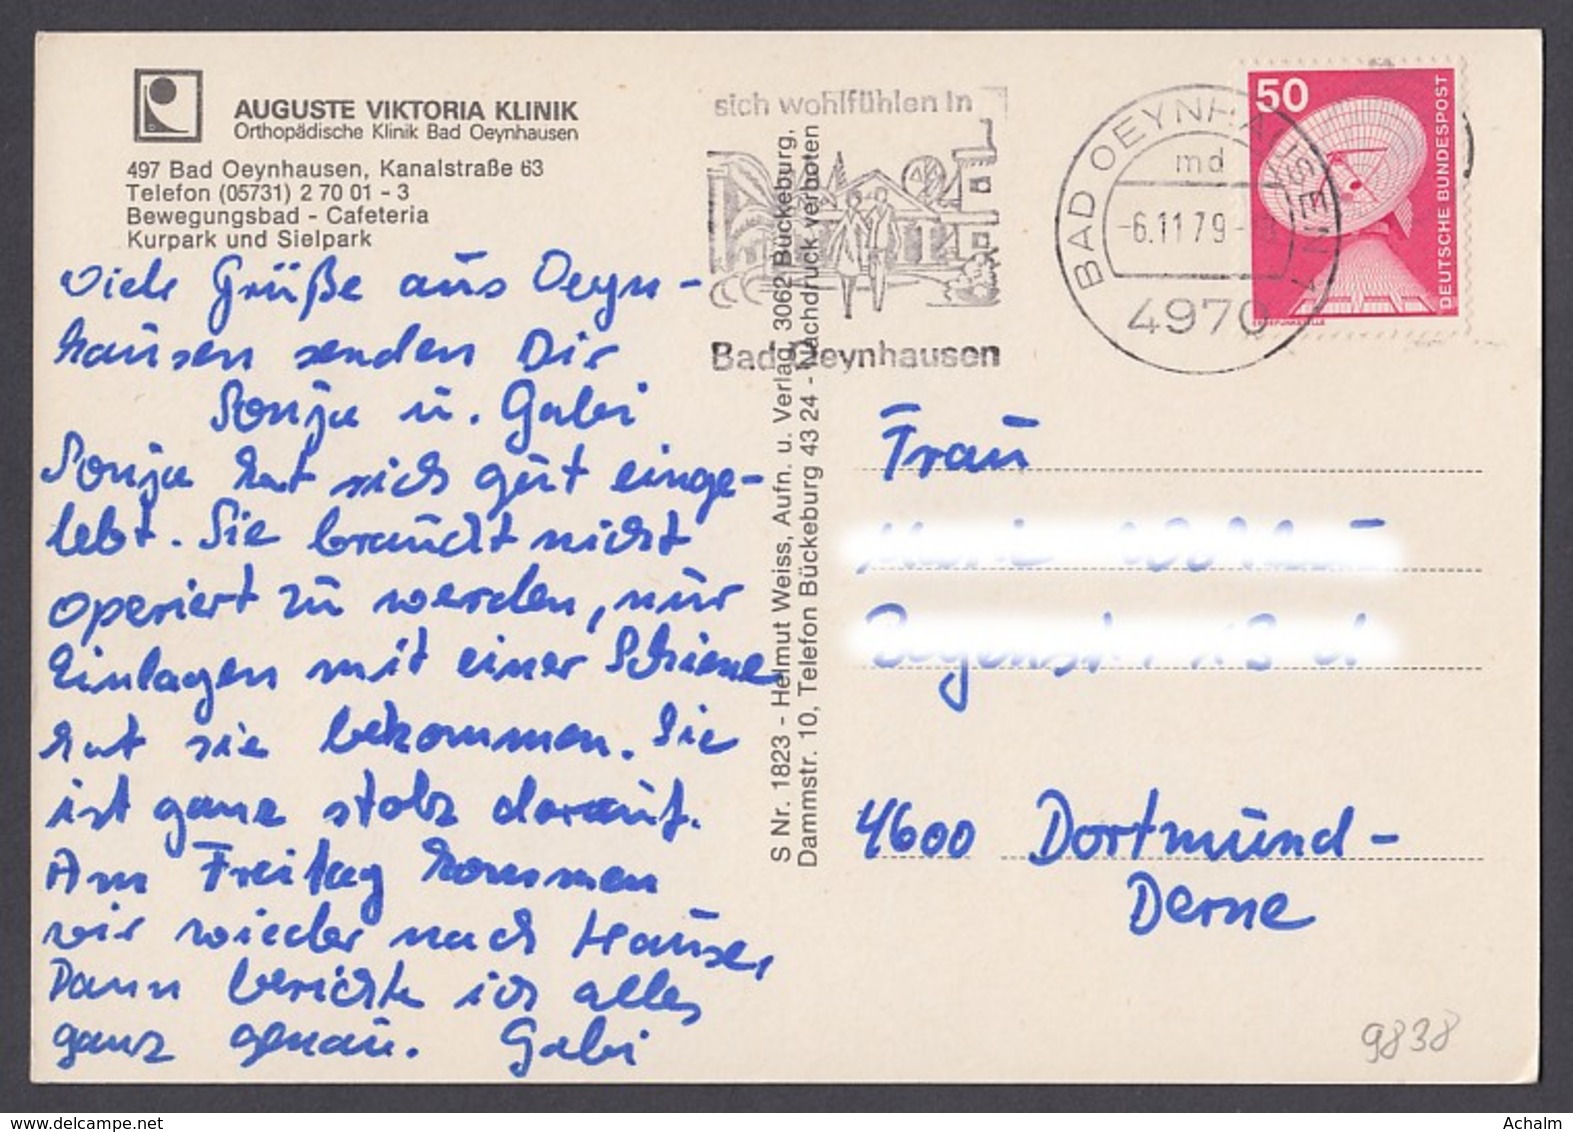 AUGUSTE VIKTORIA KLINIK
Orthopädische Klinik Bad Oeynhausen
497 Bad Oeynhausen, Kanalstraße 63
Telefon (05731) 2 70 01 - 3
Bewegungsbad - Cafeteria
Kurpark und Sielpark
Viele Grüße aus Oeyn-
hausen senden Dir
Sonja u. Gabi
Sonja hat sich gut einge-
lebt. Sie braucht nicht
operiert zu werden, nur
Einlagen mit einer Schiene
hat sie bekommen. Sie
ist ganz stolz darauf.
Am Freitag kommen
wir wieder nach Hause,
Dann berichte ich alles
ganz genau. Gabi
S Nr. 1823 - Helmut Weiss, Aufn. u. Verlag, 3062 Bückeburg,
Dammstr. 10, Telefon Bückeburg 43 24 - Nachdruck verboten
sich wohlfühlen in
Bad Oeynhausen
BAD OEYNHAUSEN 1
md
-6.11.79-
4970
50
DEUTSCHE BUNDESPOST
ERDEFUNKSTELLE
Frau
4600 Dortmund-
Derne
9838
www.delcampe.net
Achalm